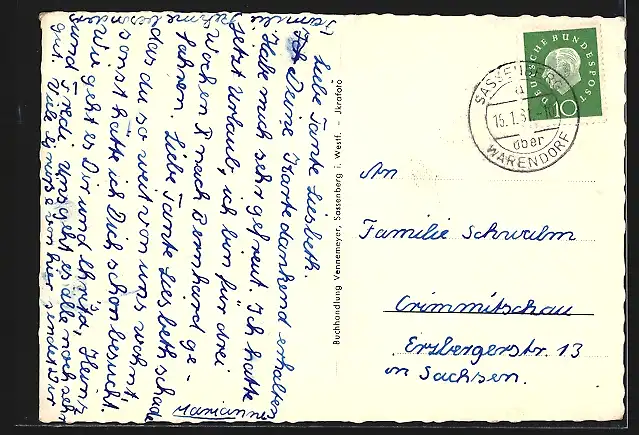 Liebe Tante Liesbeth.
Ich Deine Karte dankend erhalten
Habe mich sehr gefreut. Ich hatte
jetzt Urlaub, ich bin für drei
Wochen nach Bernhard ge-
fahren. Liebe Tante Liesbeth schade
das du so weit von uns wohnt,
sonst hätte ich Dich schon besucht.
Wie geht es Dir und Christa, Heinz
und Fredi. Uns geht es alle noch sehr
gut. Viele Grüsse von hier sendet Dir
Familie
besonders
Marianne
Buchhandlung Vennemeyer, Sassenberg i. Westf. - Jkrafoto
DEUTSCHE BUNDESPOST
10
SASSENBERG
a
15.1.61
über
WARENDORF
An
Familie Schwalm
Crimmitschau
Erzbergerstr. 13
in Sachsen.